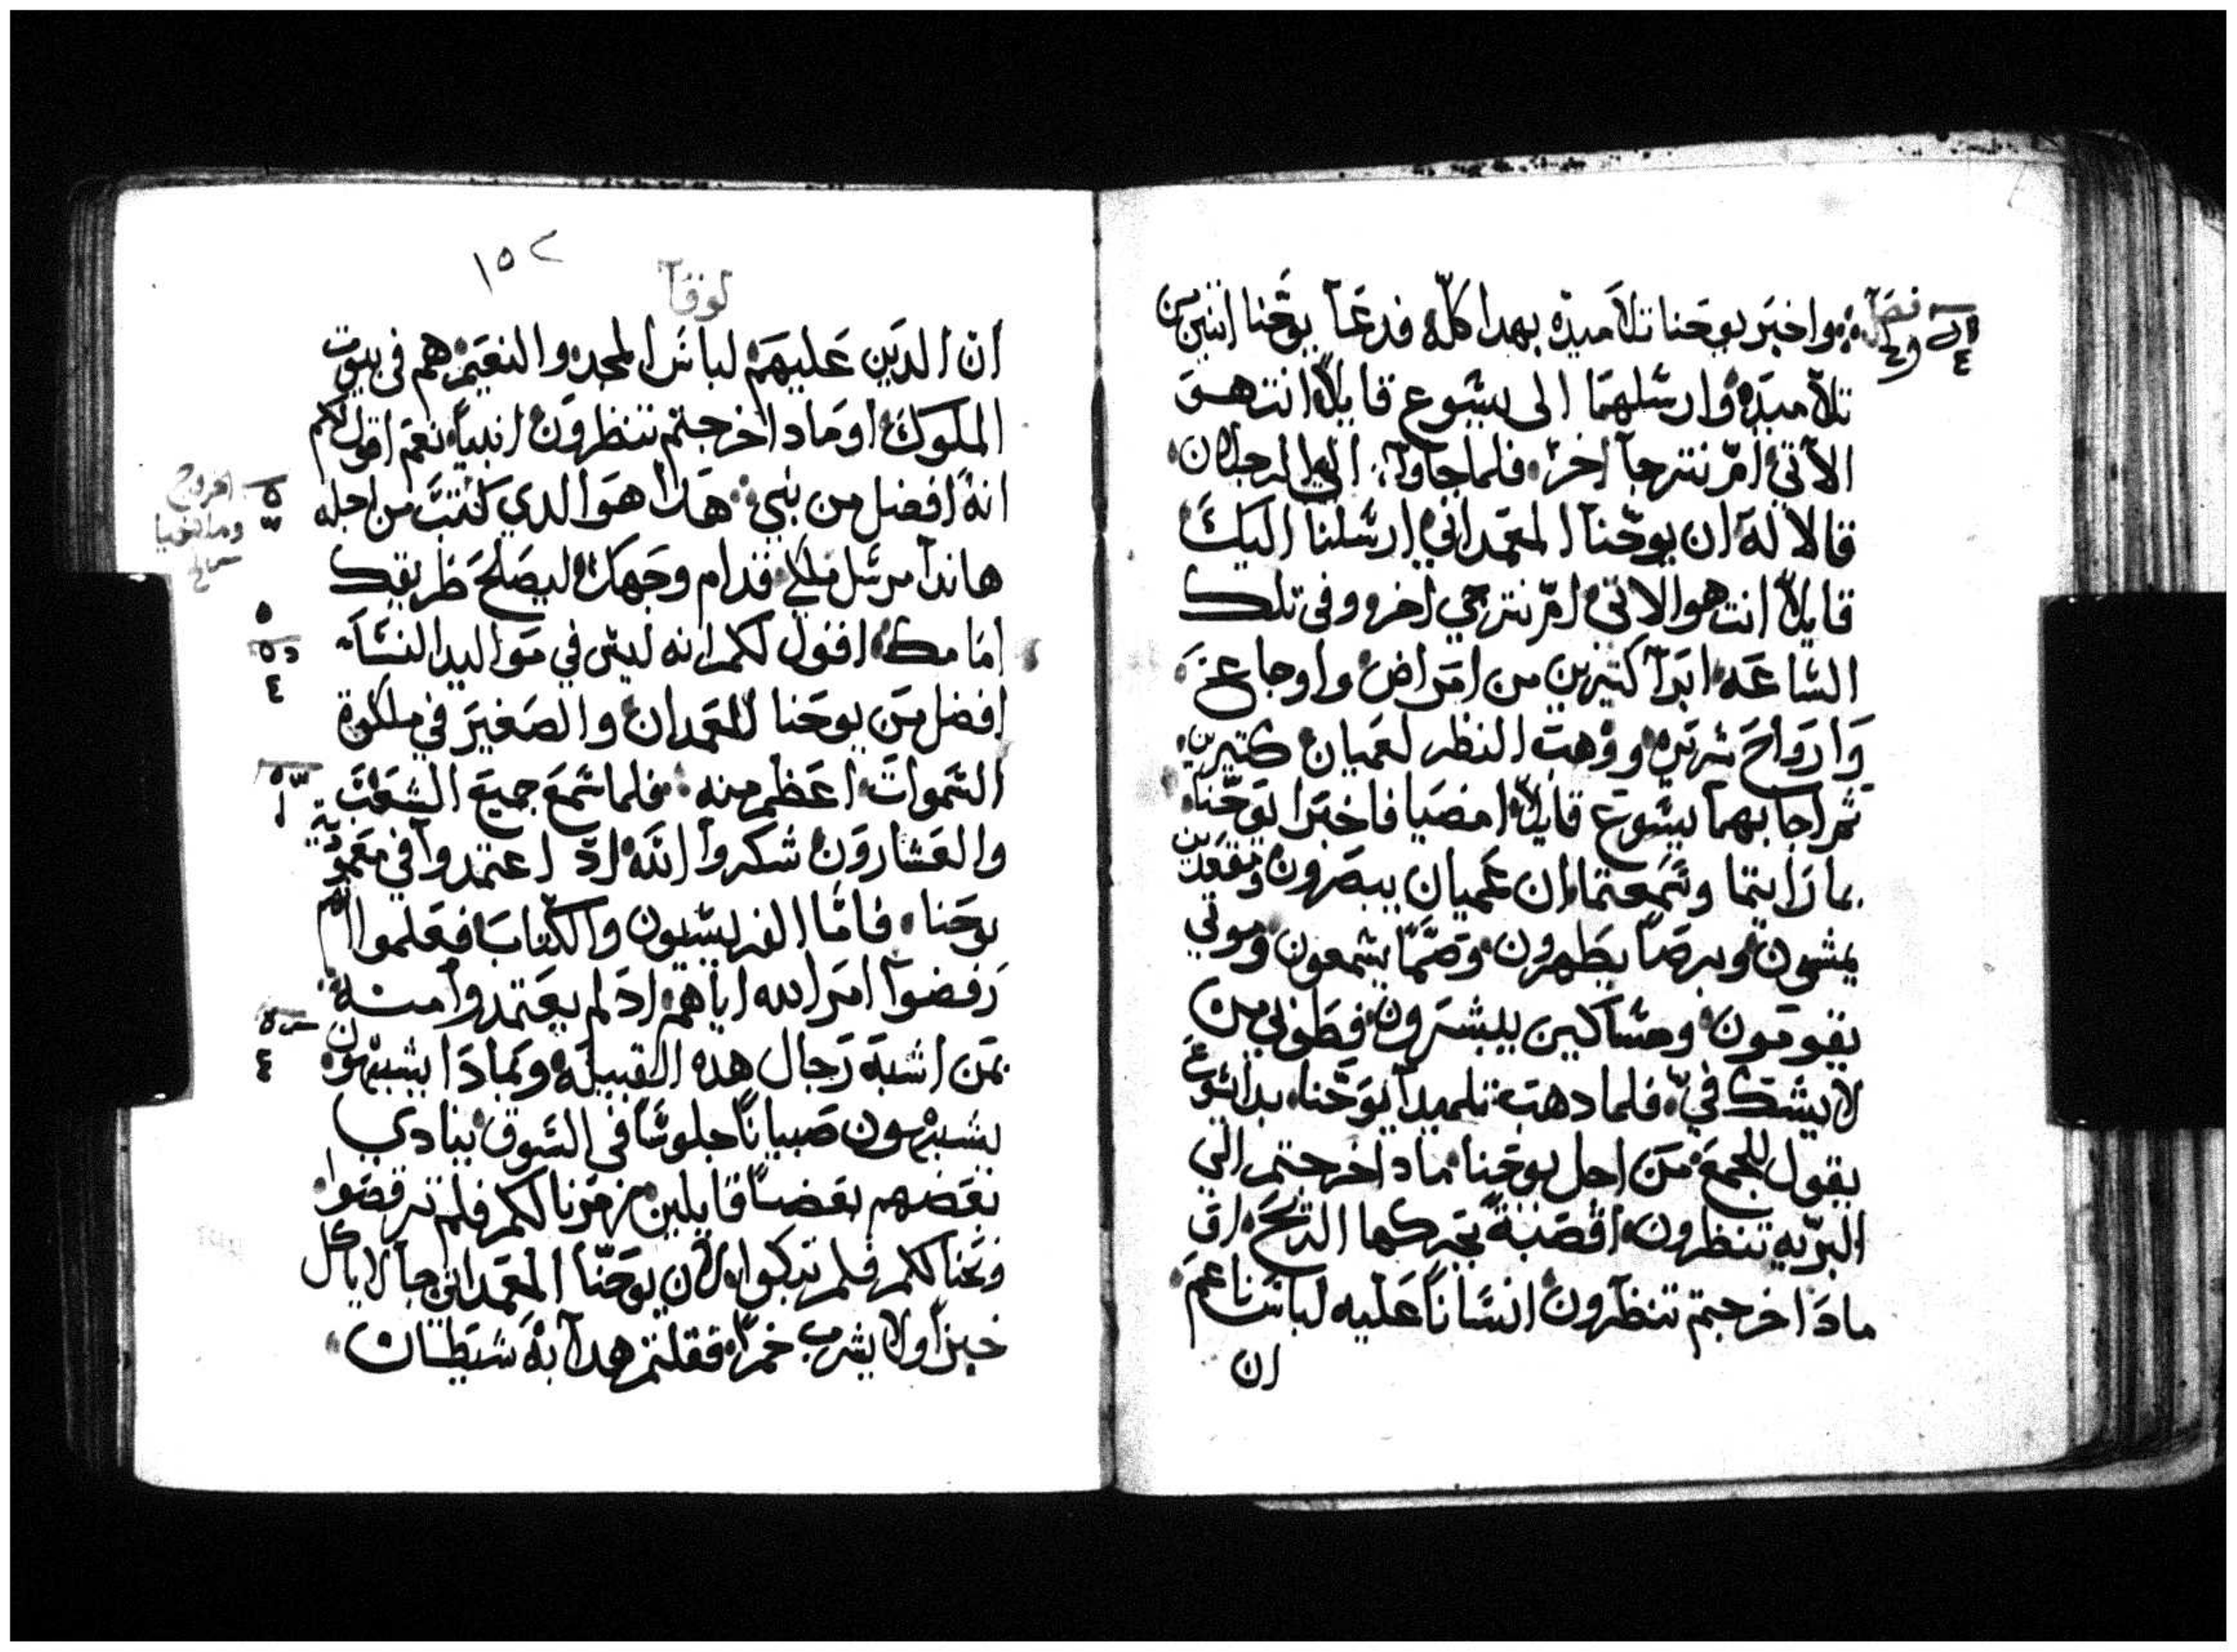 واخبر يوحنا تلاميده بهدا كله فدعا يوحنا اتنين من
تلاميده وارسلهما الى يسوع قايلا انت هو
الاتي ام نترجا اخر فلما جاوا اليه الرجلان
قالا له ان يوحنا المعمداني ارسلنا اليك
قايلا انت هو الاتي ام نترجي اخر وفي تلك
الساعه ابرا كتيرين من امراض واوجاع
وارواح شريره ووهب النظر لعميان كتيرين
تم اجابهما يسوع قايلا امضيا فاخبرا يوحنا
بما رايتما وسمعتما ان عميان يبصرون ومقعدين
يمشون وبرصا يطهرون وصما يسمعون وموتي
يقومون ومساكين يبشرون فطوبي من
لا يشك في فلما دهب تلميدا يوحنا بدا يسوع
يقول للجمع من اجل يوحنا مادا خرجتم الي
البريه تنظرون اقصبة تحركها الريح او
مادا خرجتم تنظرون انسانا عليه لباس ناعم
ان
١٥٢
لوقا
ان الدين عليهم لباس المجد والنعيم هم في بيوت
الملوك او مادا خرجتم تنظرون انبيا نعم اقول لكم
انه افضل من نبي هدا هو الدي كتب من اجله
هاندا مرسل ملاكي قدام وجهك ليصلح طريقك
امامك اقول لكم انه ليس في مواليد النسا
افضل من يوحنا المعمدان والصغير في ملكوة
السموات اعظم منه فلما سمع جميع الشعب
والعشارون شكروا الله اد اعتمدوا في معمودية
يوحنا فاما الفريسيون والكتاب فعلموا انهم
رفضوا امر الله اياهم اد لم يعتمدوا منه
بمن اشبه رجال هده القبيلة وبمادا يشبهون
يشبهون صبيانا جلوسا في السوق ينادي
بعضهم بعضا قايلين زمرنا لكم فلم ترقصوا
ونحنا لكم فلم تبكوا لان يوحنا المعمداني جا لا ياكل
خبزا ولا يشرب خمرا فقلتم هدا به شيطان